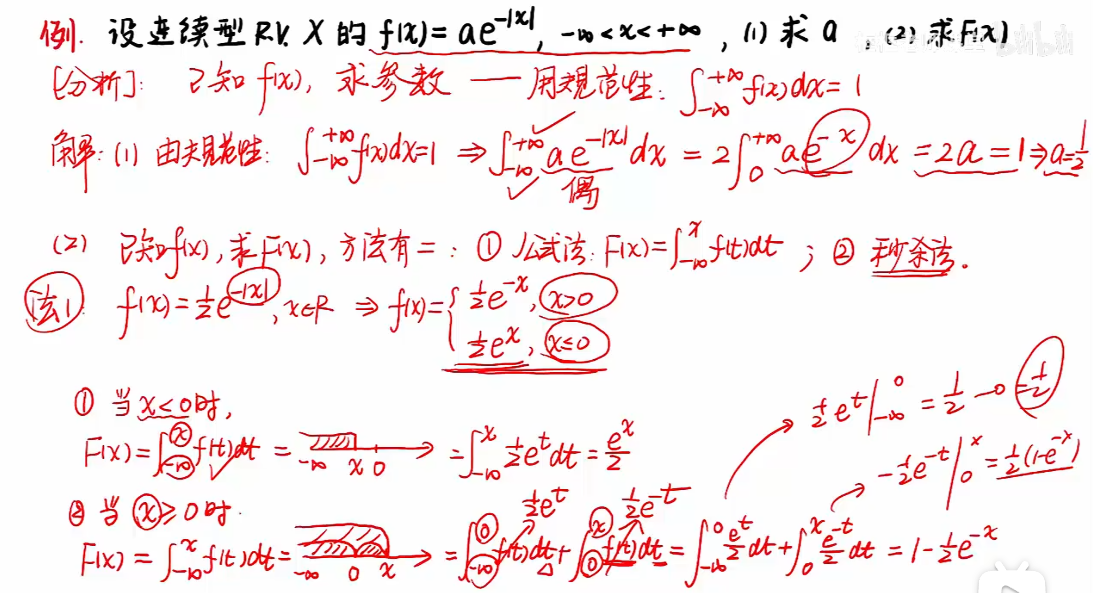 例. 设连续型 R.V. X 的 f(x)=ae^{-|x|}, -∞<x<+∞, (1) 求 a, (2) 求F(x).
[分析]: 已知 f(x), 求参数 — 用规范性: ∫_{-∞}^{+∞} f(x)dx=1
解: (1) 由规范性: ∫_{-∞}^{+∞} f(x)dx=1 ⇒ ∫_{-∞}^{+∞} ae^{-|x|}dx = 2∫_{0}^{+∞} ae^{-x}dx = 2a = 1 ⇒ a=1/2
偶
(2) 已知f(x), 求F(x), 方法有二: ① 公式法: F(x)=∫_{-∞}^{x} f(t)dt ; ② 秒杀法.
法1: f(x)=1/2 e^{-|x|}, x∈R ⇒ f(x)={ 1/2 e^{-x}, x>0
1/2 e^{x}, x≤0
① 当 x<0时,
1/2 e^t |_{-∞}^{0} = 1/2 - 0 = 1/2
F(x)=∫_{-∞}^{x} f(t)dt = -∞ x 0 =∫_{-∞}^{x} 1/2 e^t dt = e^x/2
-1/2 e^{-t} |_{0}^{x} = 1/2(1-e^{-x})
② 当 x≥0时.
1/2 e^t 1/2 e^{-t}
F(x) = ∫_{-∞}^{x} f(t)dt = -∞ 0 x = ∫_{-∞}^{0} f(t)dt + ∫_{0}^{x} f(t)dt = ∫_{-∞}^{0} e^t/2 dt + ∫_{0}^{x} e^{-t}/2 dt = 1-1/2 e^{-x}